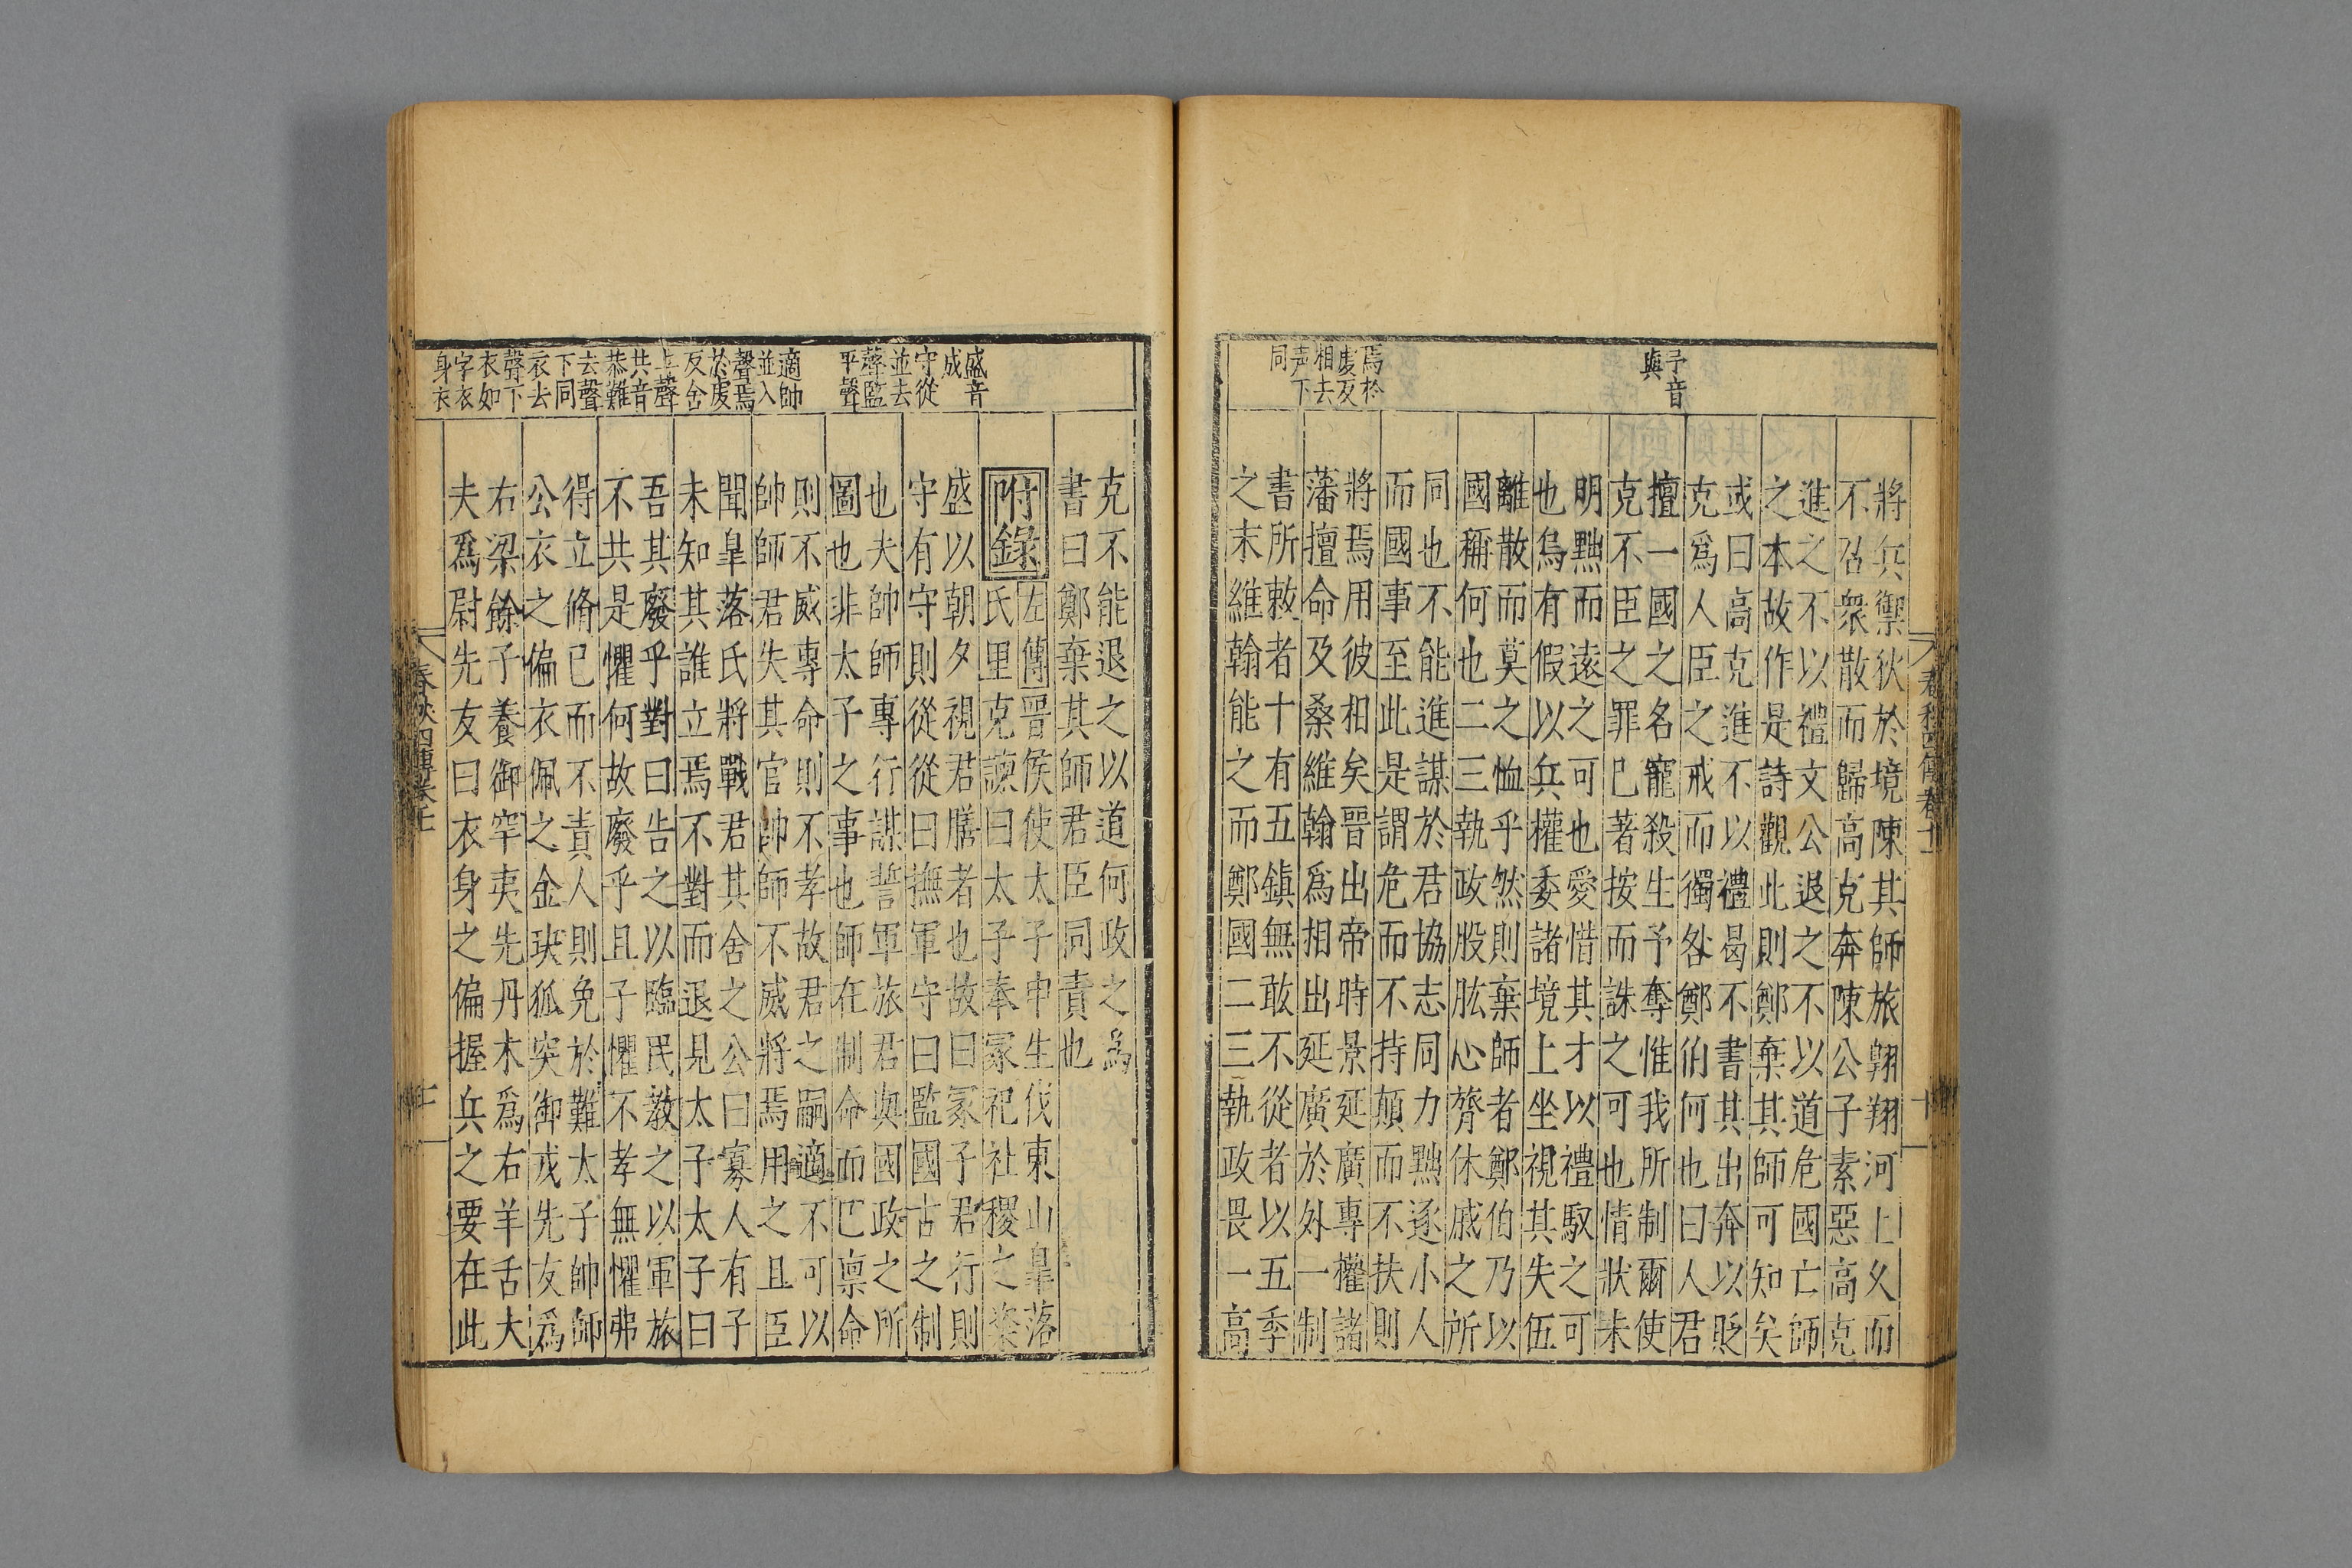 予音
與
焉於
處反
相去
声下
同
將兵禦狄於境陳其師旅翱翔河上久而
不召衆散而歸高克奔陳公子素惡高克
進之不以禮文公退之不以道危國亡師
之本故作是詩觀此則鄭棄其師可知矣
或曰高克進不以禮曷不書其出奔以貶
克爲人臣之戒而獨咎鄭伯何也曰人君
擅一國之名寵殺生予奪惟我所制爾使
克不臣之罪已著按而誅之可也情狀未
明黜而逺之可也愛惜其才以禮馭之可
也烏有假以兵權委諸境上坐視其失伍
離散而莫之恤乎然則棄師者鄭伯乃以
國稱何也二三執政股肱心膂休戚之所
同也不能進謀於君協志同力黜逐小人
而國事至此是謂危而不持顛而不扶則
將焉用彼相矣晉出帝時景延廣專權諸
藩擅命及桑維翰爲相出延廣於外一制
書所敕者十有五鎮無敢不從者以五季
之末維翰能之而鄭國二三執政畏一高
盛音
成
守從
並去
聲監
平聲
適帥
並入
聲焉
於處
反舍
上聲
共音
恭難
去聲
下同
衣去
聲下
衣如
字衣
身衣
克不能退之以道何政之爲
書曰鄭棄其師君臣同責也
附錄
左傳晉侯使太子申生伐東山皐落
氏里克諫曰太子奉冢祀社稷之粢
盛以朝夕視君膳者也故曰冢子君行則
守有守則從從曰撫軍守曰監國古之制
也夫帥師專行謀誓軍旅君與國政之所
圖也非太子之事也師在制命而已禀命
則不威專命則不孝故君之嗣適不可以
帥師君失其官帥師不威將焉用之且臣
聞皐落氏將戰君其舍之公曰寡人有子
未知其誰立焉不對而退見太子太子曰
吾其廢乎對曰告之以臨民教之以軍旅
不共是懼何故廢乎且子懼不孝無懼弗
得立脩已而不責人則免於難太子帥師
公衣之偏衣佩之金玦狐突御戎先友爲
右梁餘子養御罕夷先丹木爲右羊舌大
夫爲尉先友曰衣身之偏握兵之要在此
春秋四傳卷十